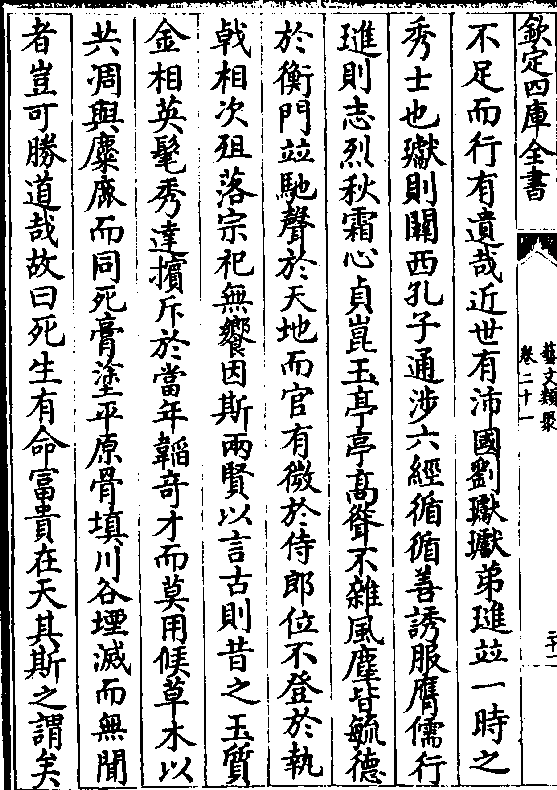 欽定四庫全書
藝文類聚
卷二十一
不足而行有遺哉近世有沛國劉瓛瓛弟璡竝一時之
秀士也瓛則關西孔子通涉六經循循善誘服膺儒行
璡則志烈秋霜心貞崑玉亭亭高聳不雜風塵皆毓德
於衡門竝馳聲於天地而官有微於侍郎位不登於執
戟相次殂落宗祀無饗因斯兩賢以言古則昔之玉質
金相英髦秀達擯斥於當年韞奇才而莫用候草木以
共凋與麋鹿而同死膏塗平原骨填川谷堙滅而無聞
者豈可勝道哉故曰死生有命富貴在天其斯之謂矣